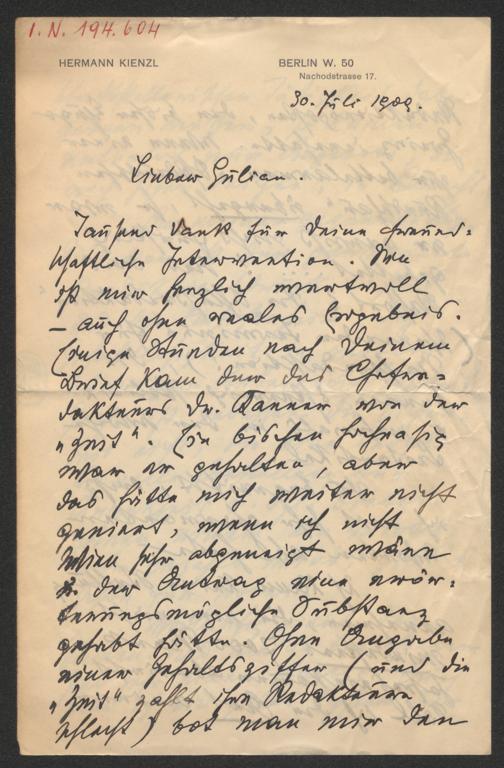 I. N. 194.604
HERMANN KIENZL
BERLIN W. 50
Nachodstrasse 17.
30. Juli 1909.
Lieber Gilian.
Tausend Dank für Deine freund-
schaftliche Intervention. Sie
ist mir herzlich wertvoll
– auch ohne reales Ergebnis.
Einige Stunden nach Deinem
Brief kam der des Chefre-
dakteurs Dr. Kanner von der
„Zeit“. Ein bischen hochnasig
war er gehalten, aber
das hätte mich weiter nicht
geniert, wenn ich nicht
Wien sehr abgeneigt wäre
u. der Antrag eine erör-
terungsmögliche Substanz
gehabt hätte. Ohne Angabe
einer Gehaltsziffer (und die
„Zeit“ zahlt ihre Redakteure
schlecht) bot man mir den